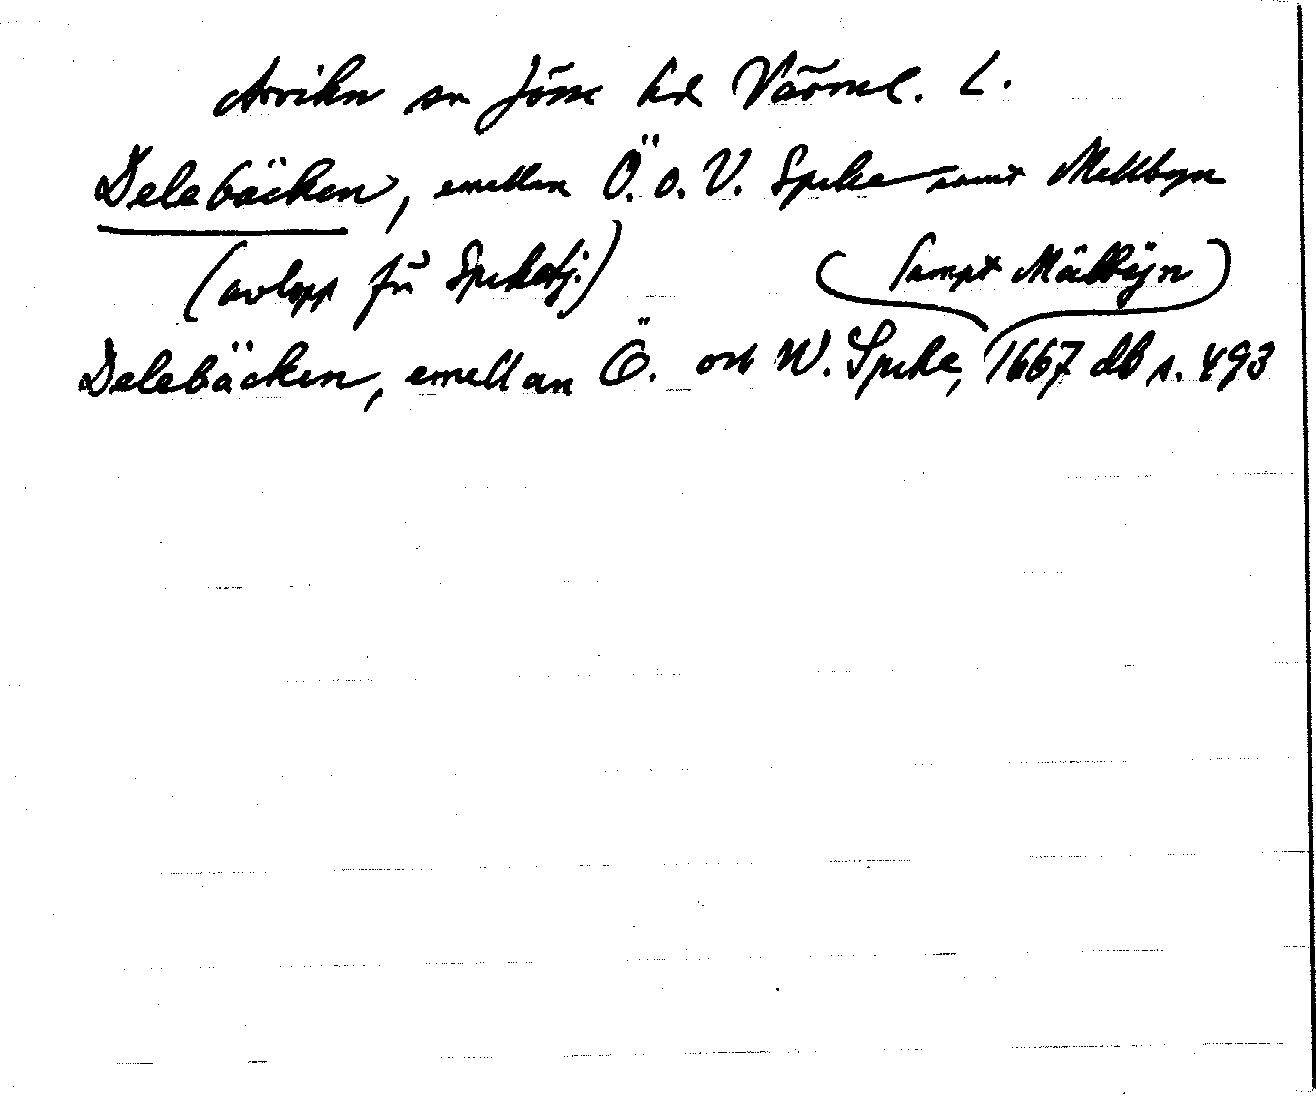 Arvika sn Jösse hd Värml. L.
Delebäcken, emellan Ö. o. V. Speke samt Mellbyn
(avlopp fr. Speketj.)
(sampt Mällbyn)
Delebäcken, emellan Ö. och W. Speke, 1667 db s. 493